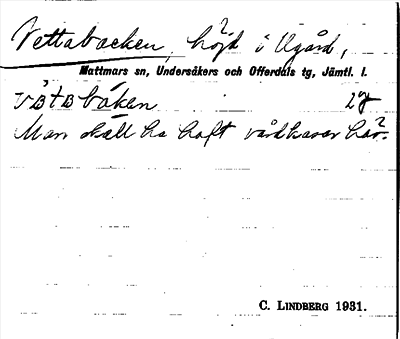 Vettabacken, höjd i Ugård,
Mattmars sn, Undersåkers och Offerdals tg, Jämtl. l.
båken
Man skall ha haft vårdkasar här.
C. LINDBERG 1931.